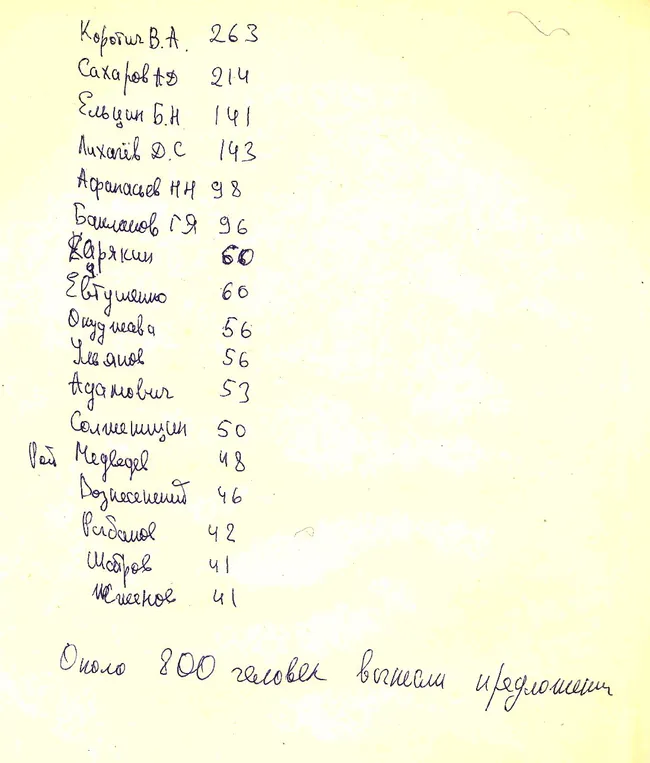 Коротич В.А. 263
Сахаров АД 214
Ельцин Б.Н 141
Лихачёв Д.С 143
Афанасьев НН 98
Бакланов ГЯ 96
Карякин 60
Евтушенко 60
Окуджава 56
Ульянов 56
Адамович 53
Солженицин 50
Рой Медведев 48
Вознесенский 46
Рыбаков 42
Шатров 41
41
Около 800 человек внесли предложения